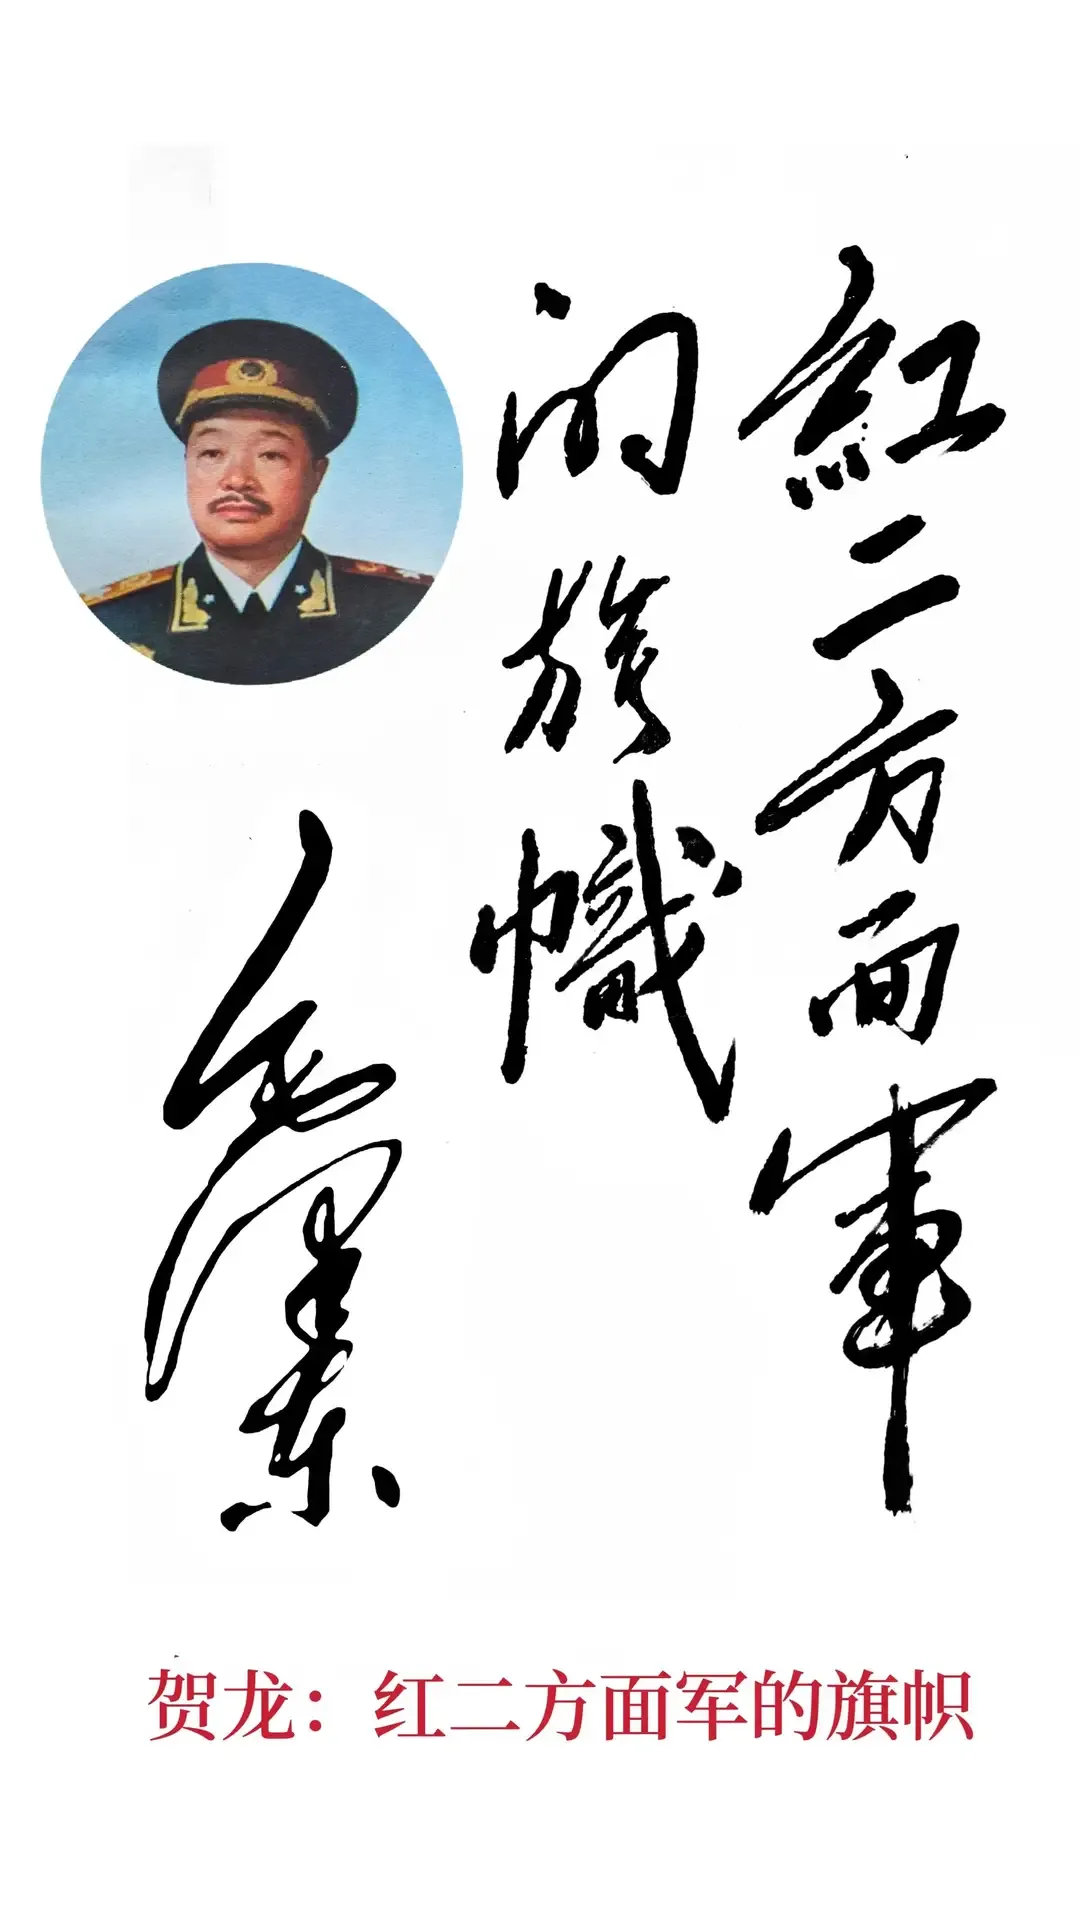 紅二方面軍
的旗幟
毛泽东
贺龙：红二方面军的旗帜